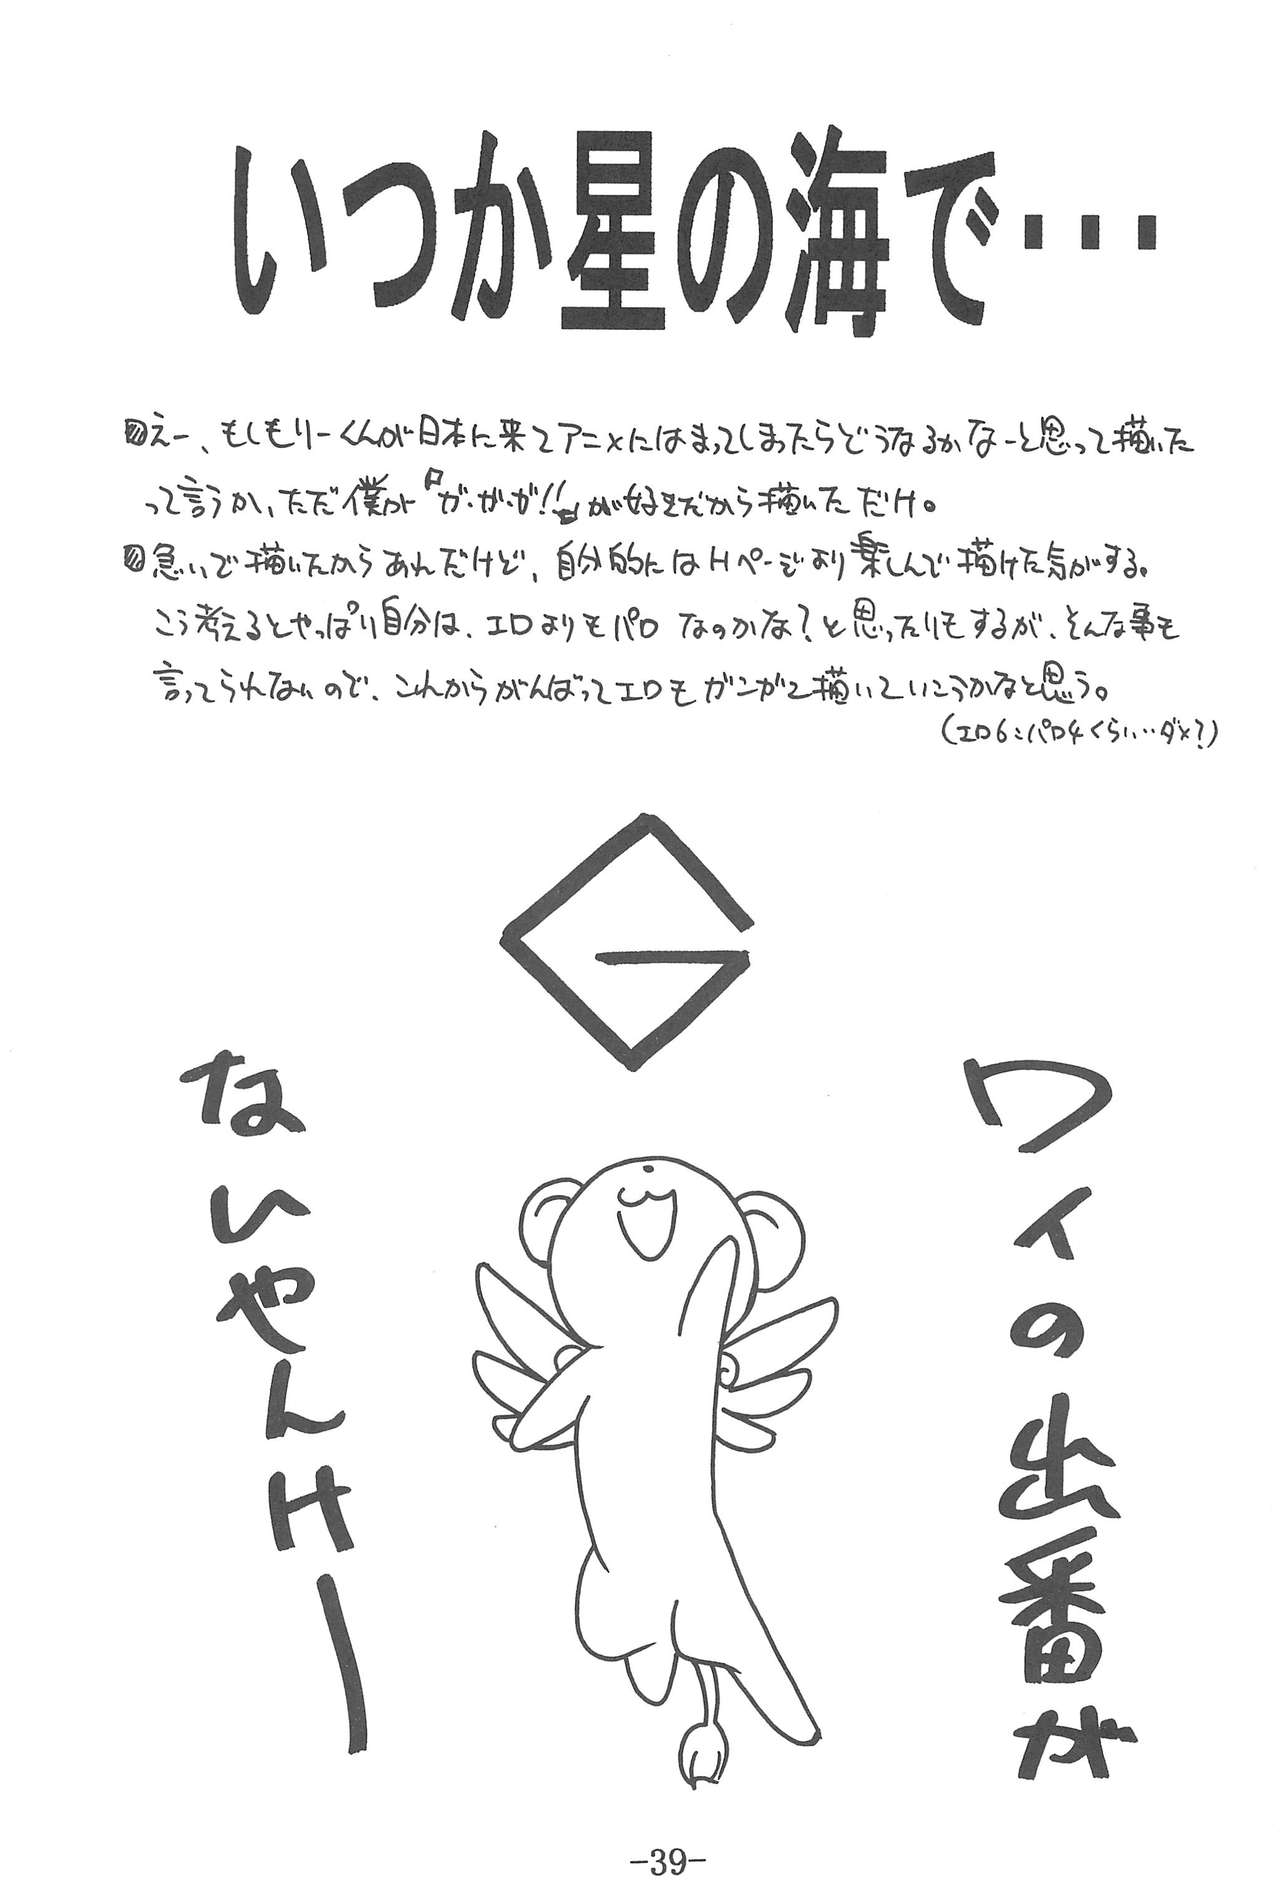 いつか星の海で・・・
えー、もしもりーくんが日本に来てアニメにはまってしまったらどうなるかなーと思って描いた
って言うか、ただ僕が『ガ・ガ・ガ!!』が好きだから描いただけ。
急いで描いたからあれだけど、自分的にはHページより楽しんで描けた気がする。
こう考えるとやっぱり自分は、エロよりもパロなのかな?と思ったりもするが、そんな事も
言ってられないので、これからがんばってエロもガンガン描いていこうかなと思う。
(エロ6:パロ4くらい‥ダメ?)
G
ワイの出番が
ないやんけー
-39-